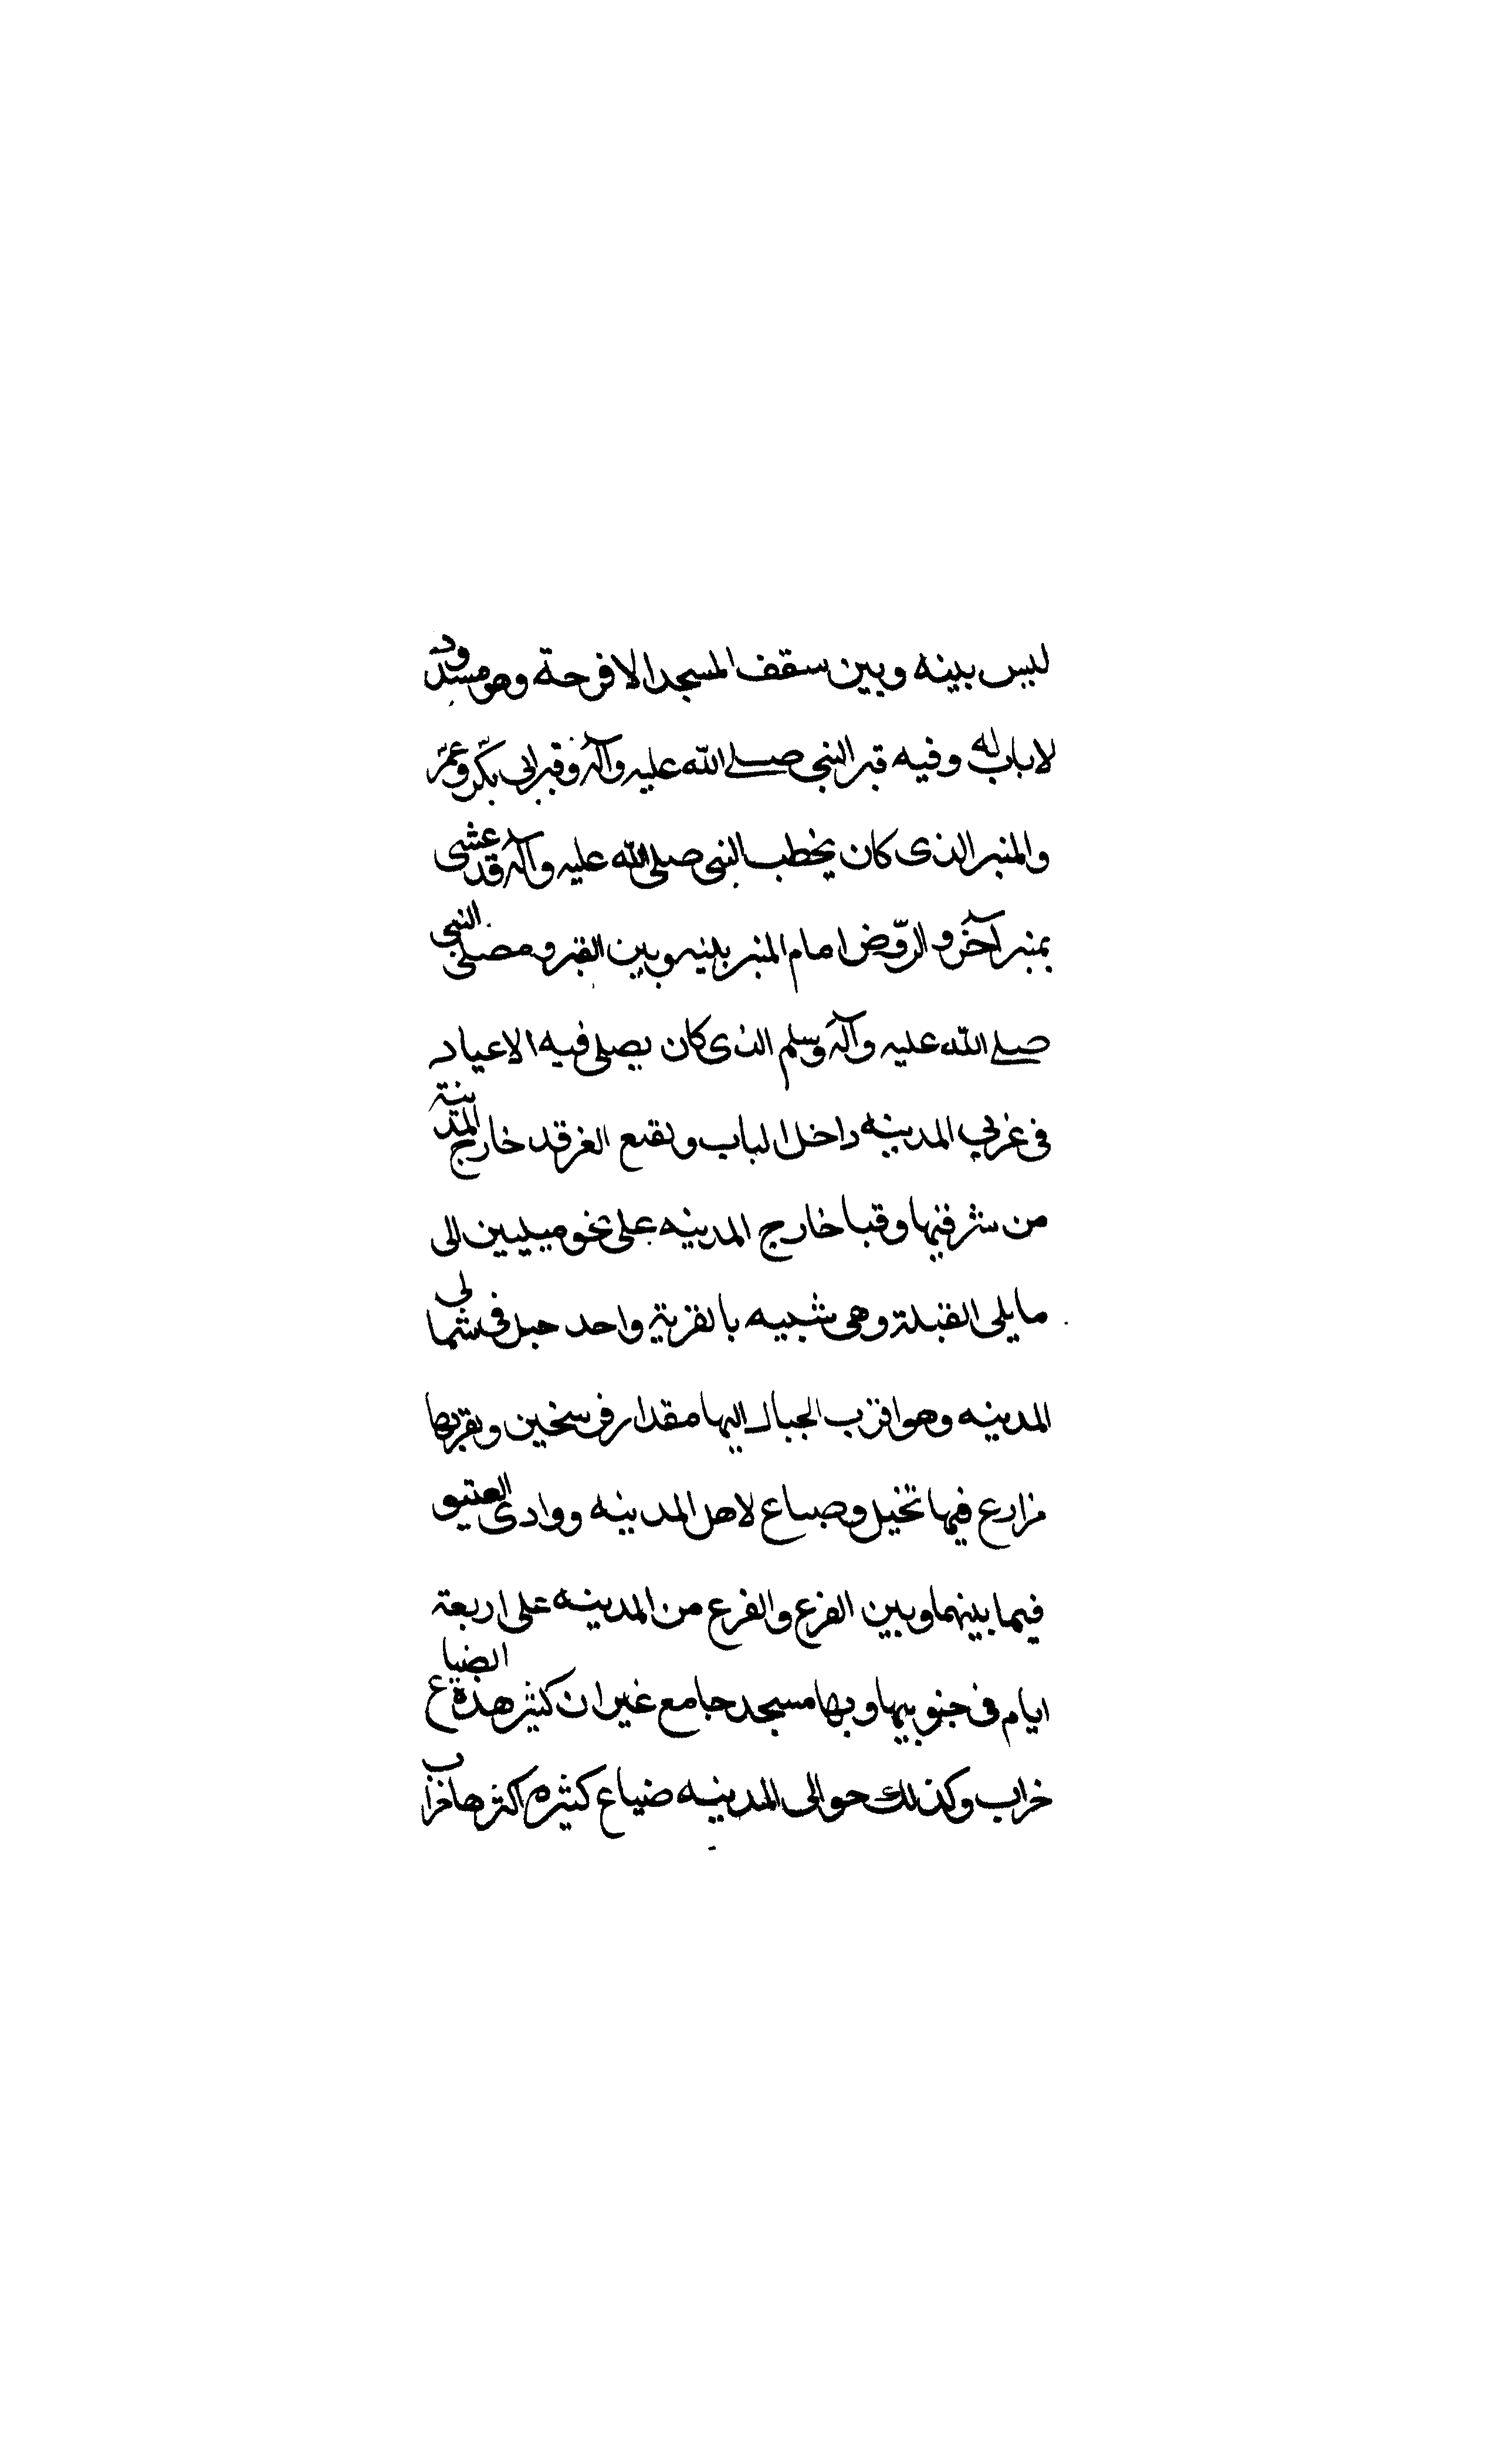 ليس بينه وبين سقف المسجد الا فرجة وهو مسدود
لا باب له وفيه قبر النبي صلى الله عليه وآله وقبر ابى بكر وعمر
والمنبر الذى كان يخطب النبى صلى الله عليه وآله قد عشى
بمنبر آخر والروض امام المنبر بينه وبين القبر ومصلى النبى
صلى الله عليه وآله وسلم الذى كان يصلى فيه الاعياد
فى غربي المدينه داخل الباب وبقيع الغرقد خارج المدينة
من شرقيها وقبا خارج المدينه على نحو ميلين الى
ما يلى القبلة وهى شبيه بالقرية واحد جبل فى شمالى
المدينه وهو اقرب الجبال اليها مقدار فرسخين وبقربها
مزارع فيها نخيل وضياع لاهل المدينه ووادى العتيق
فيما بينهما وبين الفرع والفرع من المدينه على اربعة
ايام فى جنوبيها وبها مسجد جامع غير ان كثير هذه الضياع
خراب وكذلك حوالى المدينه ضياع كثيره اكثرها خراب